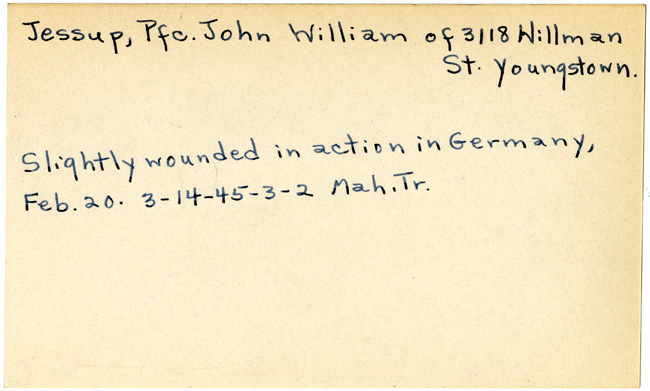 Jessup, Pfc. John William of 3118 Hillman
St. Youngstown.
Slightly wounded in action in Germany,
Feb. 20. 3-14-45-3-2 Mah. Tr.